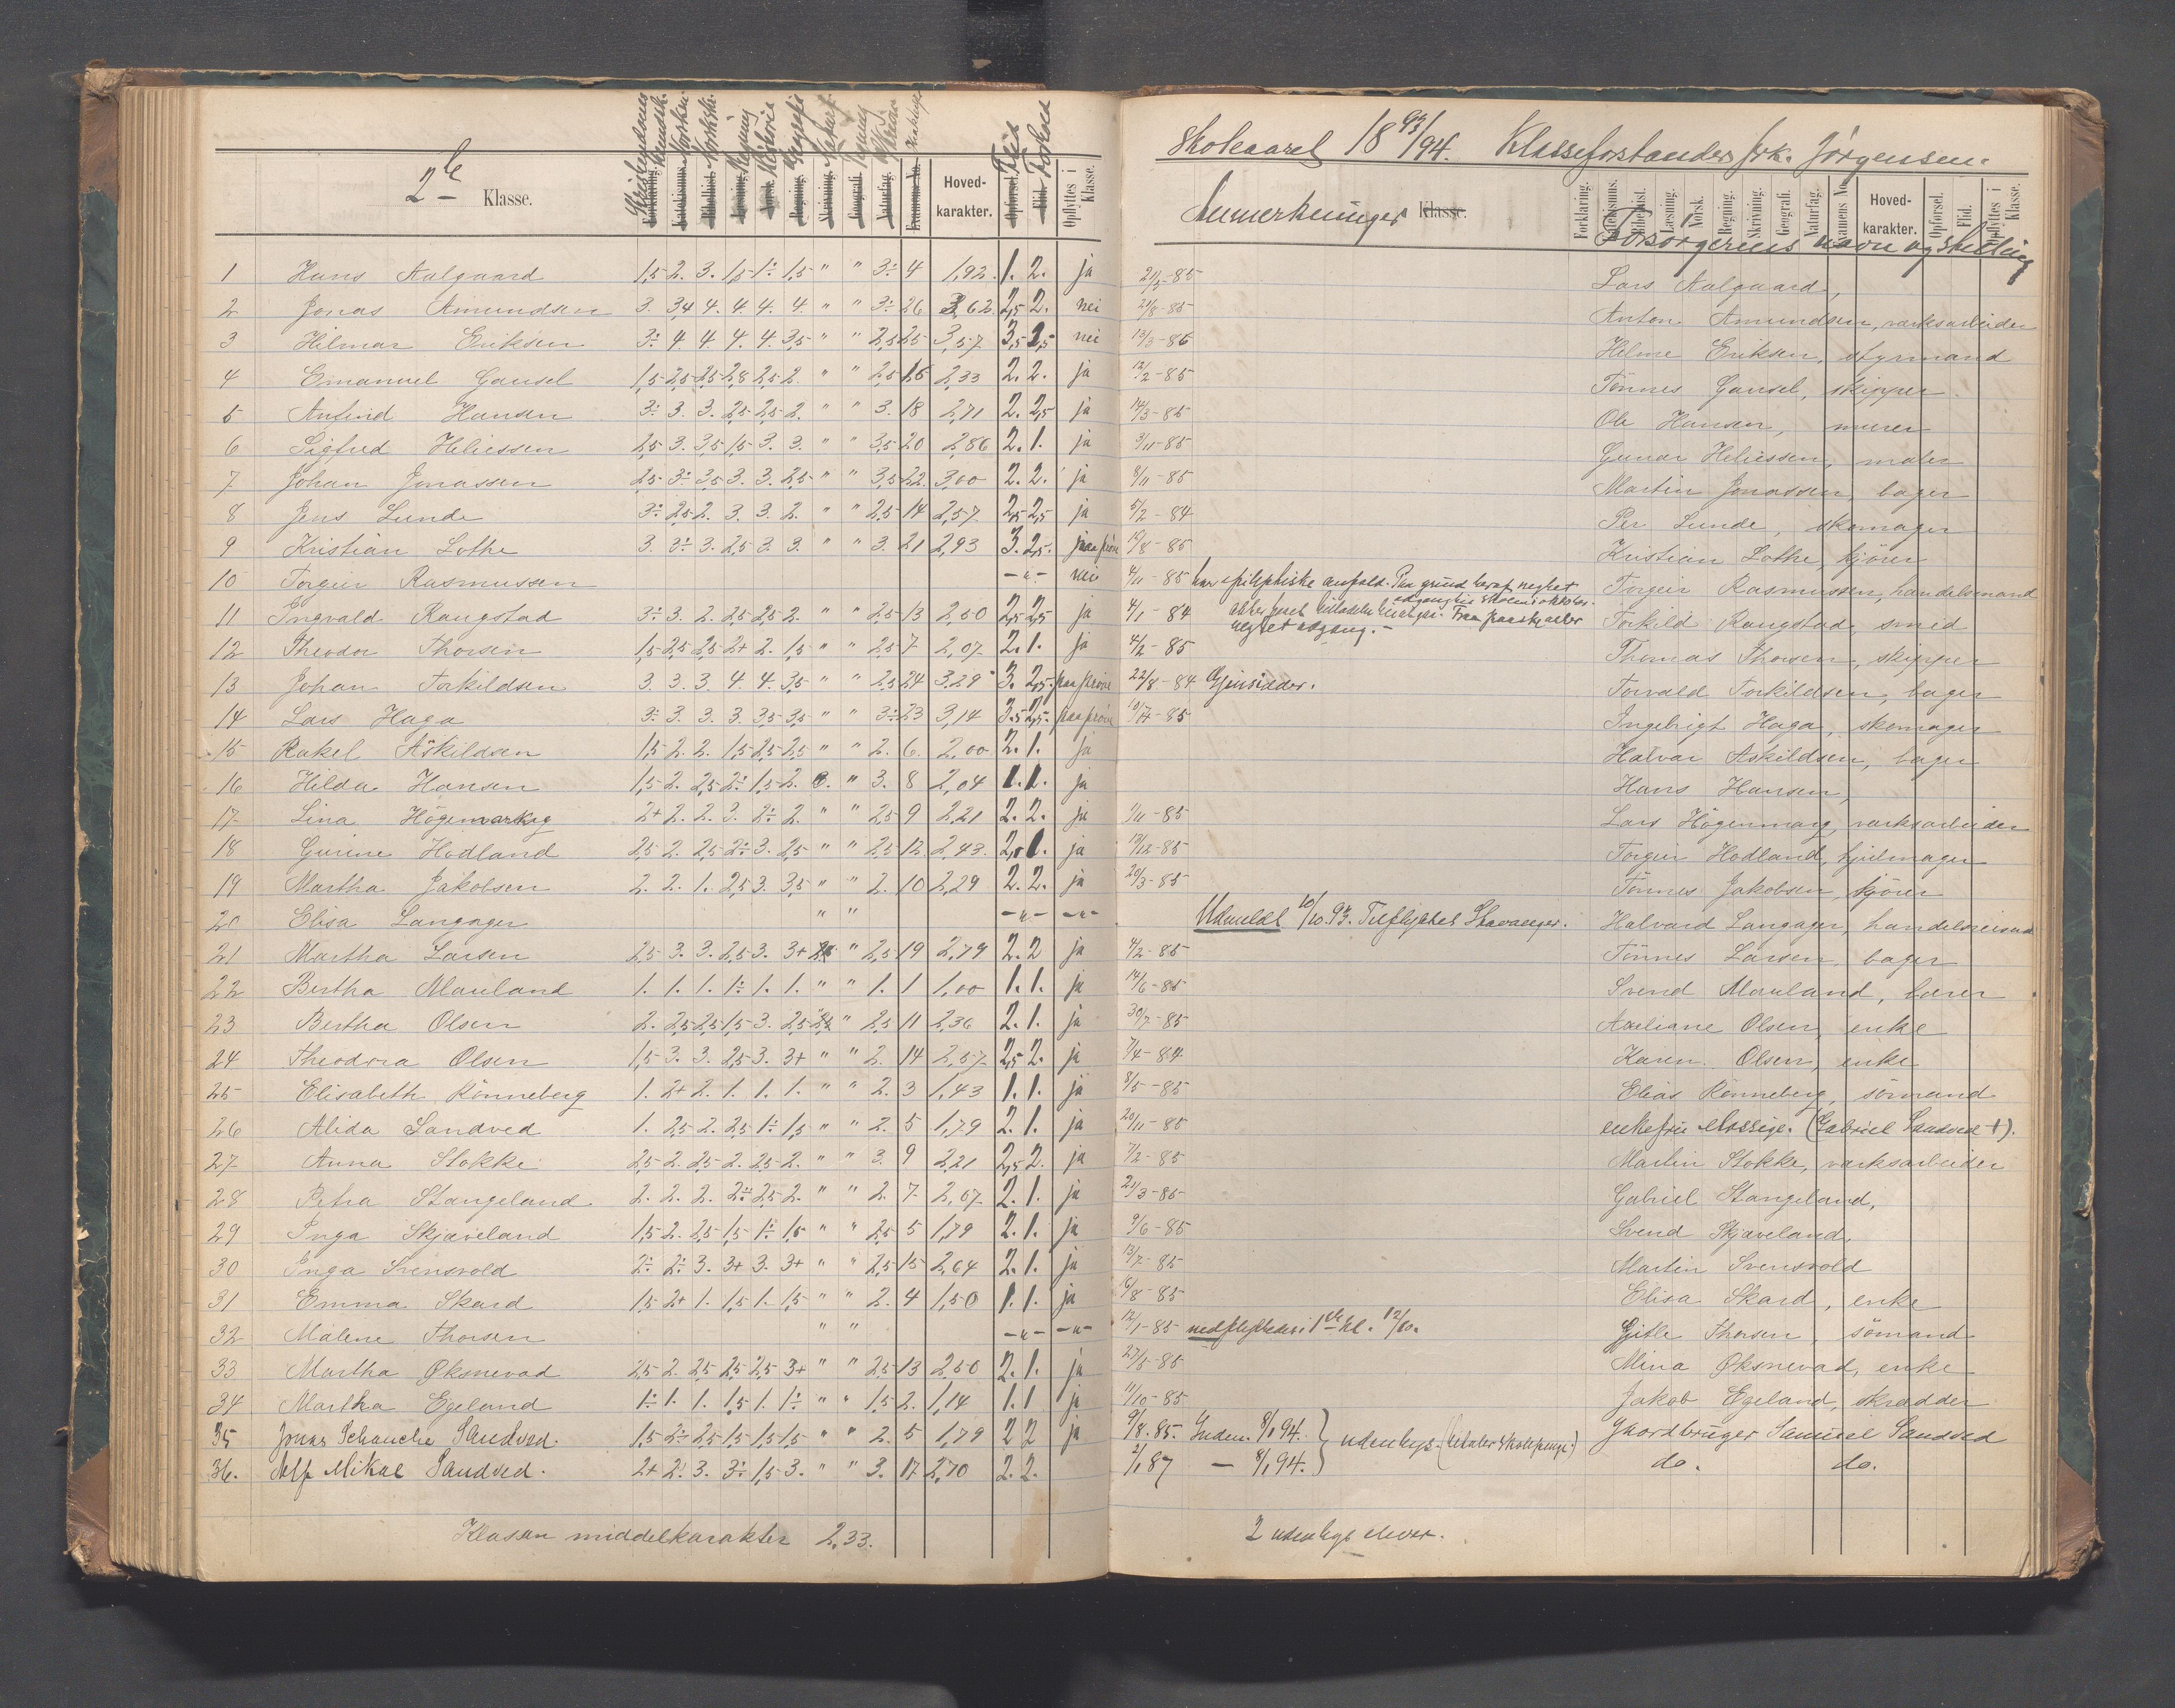 2de Klasse.
Hoved-karakter. Flid Forhold Opflyttes i Klasse.
1 Hans Aalgaard 1,5 2. 3. 1,5 1÷ 1,5 " " 3÷ 4 1,92 1. 2. ja
2 Jonas Amundsen 3. 3,4 4. 4. 4. 4. " " 3÷ 26 3,62 2,5 2. nei
3 Hilmar Eriksen 3÷ 4. 4. 4. 4. 3,5 " " 2,5 25 3,57 3,5 2,5 nei
4 Emanuel Gausel 1,5 2,5 2,5 2,8 2,5 2. " " 2,5 16 2,33 2. 2. ja
5 Anfind Hansen 3÷ 3. 3. 2,5 2,5 2. " " 3. 18 2,71 2. 2,5 ja
6 Sigfred Heliessen 2,5 3. 3,5 1,5 3. 3. " " 3,5 20 2,86 2. 1. ja
7 Johan Jonassen 2,5 3÷ 3,5 3. 3. 2,5 " " 3,5 22. 3,00 2. 2. ja
8 Jens Lunde 3÷ 2,5 2. 3. 3. 2. " " 2,5 14 2,57 2,5 2,5 ja
9 Kristian Lothe 3. 3÷ 3. 2,5 3. 3. " " 3. 21 2,93 3. 2,5. paa prøve
10 Torgeir Rasmussen -"- nei
11 Ingvald Raugstad 3÷ 3. 2. 2,5 2,5 2. " " 2,5 13 2,50 2,5 2,5 ja
12 Theodor Thorsen 1,5 2,5 2,5 2+ 2. 1,5 " " 2,5 7 2,07 2. 1. ja
13 Johan Torkildsen 3. 3. 3. 4. 4. 3,5 " " 2,5 24 3,29 3. 2,5. paa prøve
14 Lars Haga 3÷ 3. 3. 3. 3,5 3,5 " " 3÷ 23 3,14 3.5 2,5. paa prøve
15 Rakel Askildsen 1,5 2. 2. 1,5 2,5 2,5 " " 2. 6. 2,00 2. 1. ja
16 Hilda Hansen 1,5 2. 2,5 2÷ 1,5 2. " 3. 8 2,04 1. 1. ja
17 Lina Högemarkeg 2+ 2. 2. 3. 2÷ 2. " " 2,5 9 2,21 2. 2. ja
18 Gurine Hodland 2,5 2. 2,5 2÷ 3. 2,5 " " 2,5 12 2,43. 2,5 1. ja
19 Martha Jakobsen 2. 2. 1. 2,5 3. 3,5 " " 2. 10 2,29 2. 2. ja
20 Elisa Langager " " -"- -"-
21 Martha Larsen 2,5 3. 3. 2,5 3. 3+ " 2,5 19 2,79 2. 2 ja
22 Bertha Mauland 1. 1. 1. 1÷ 1. 1. " " 1. 1 1,00 1. 1. ja
23 Bertha Olsen 2. 2,5 2,5 1,5 3. 2,5 " 2,5 11 2,36 2. 1. ja
24 Theodora Olsen 1,5 3. 3. 2,5 3. 3+ " " 2. 14 2,57 2,5 2. ja
25 Elisabeth Rönneberg 1. 2+ 2. 1. 1. 1. " " 2. 3 1,43 1. 1. ja
26 Alida Sandved 1. 2,5 2. 2,5 1÷ 1,5 " " 2. 5 1,79 2. 1. ja
27 Anna Stokke 2,5 2. 2,5 2. 2,5 2. " " 3. 9 2,21 2,5 2. ja
28 Petra Stangeland 2. 2. 2. 2÷ 2,5 2. " " 2. 7 2,07 2. 1. ja
29 Inga Skjæveland 1,5 2. 2,5 1,5 1÷ 1,5 " " 2,5 5 1,79 2. 1. ja
30 Inga Svensvold 2÷ 2÷ 3. 3+ 3. 3+ " " 2,5 15 2,64 2. 1. ja
31 Emma Skard 1,5 2+ 1. 1,5 1. 1,5 " " 2. 4 1,50 1. 1. ja
32 Malene Thorsen " " -"- -"-
33 Martha Øksnevad 2,5 2. 2,5 2,5 2,5 3+ " " 2,5 13 2,50 2. 1. ja
34 Martha Egeland 1÷ 1. 1. 1,5 1. 1÷ " " 1,5 2. 1,14 1. 1 ja
35 Jonas Schanche Sandved. 1,5 2÷ 2,5 1,5 1,5 1,5 " " 2. 5 1,79 2 2 ja
36. Alf Mikal Sandved. 2+ 2. 3. 3÷ 1,5 3. " " 3. 17 2,70 2. 2.
Klassen middelkarakter 2,33.
Skoleaaret 1893/94. Klasseforstander frk. Jørgensen.
Anmerkninger Klasse.
Forklaring. Bibelhist. Læsning. Norsk. Regning. Skrivning. Geografi. Naturfag. Hoved-karakter. Opførsel. Flid. Opflyttes i Klasse.
Forsørgerens navn og stilling
21/5-85 Lars Aalgaard,
21/8-85 Anton Amundsen, værksarbeider
13/3-86 Helme Eriksen, styrmand
12/2-85 Tönnes Gausel, skipper
14/3-85 Ole Hansen, murer
3/11-85 Gunar Heliessen, maler
8/11-85 Martin Jonassen, bager
5/2-84 Per Lunde, skomager
19/8-85 Kristian Lothe, kjörer
4/11-85 har epileptiske anfald. Paa grund heraf negtet adgang til skolen i oktober. Torgeir Rasmussen, handelsmand
4/1-84 Fra paaske atter negtet adgang. Torkild Raugstad, smed
4/2-85 Thomas Thorsen, skipper
22/8-84 Gjensidder. Torvald Torkildsen, bager
10/17-85 Ingebrigt Haga, skomager
Halvar Askildsen, bager
Hans Hansen,
1/11-85 Lars Högenmarg, værksarbeider
13/12-85 Torgeir Hodland, hjulmager
20/3-85 Tönnes Jakobsen, kjörer
Udmeldt 10/10.93. Tilflyttet Stavanger. Halvard Langager, handelsreisende
4/2-85 Tönnes Larsen, bager
14/6-85 Svend Mauland, bærer
30/7-85 Axeliane Olsen, enke
7/4-84 Karen Olsen, enke
8/5-85 Elias Rönneberg, sömand
20/11-85 enkefru Mossige. (Gabriel Sandved †).
7/2-85 Martin Stokke, værksarbeider
21/3-85 Gabriel Stangeland,
9/6-85 Svend Skjæveland,
13/7-85 Martin Svensvold
16/8-85 Elisa Skard, enke
12/1-85 nedflyttedes i 1ste kl. 12/10. Gitle Thorsen, sömand
27/5-85 Mina Øksnevad, enke
11/10-85 Jakob Egeland, skrædder
9/8.85. Inden. 8/1 94. } udenbys. (betaler skolepenge.) Gaardbruger Samuel Sandved
2/1 87 - 8/1 94. do. do.
2 udenbys elever.